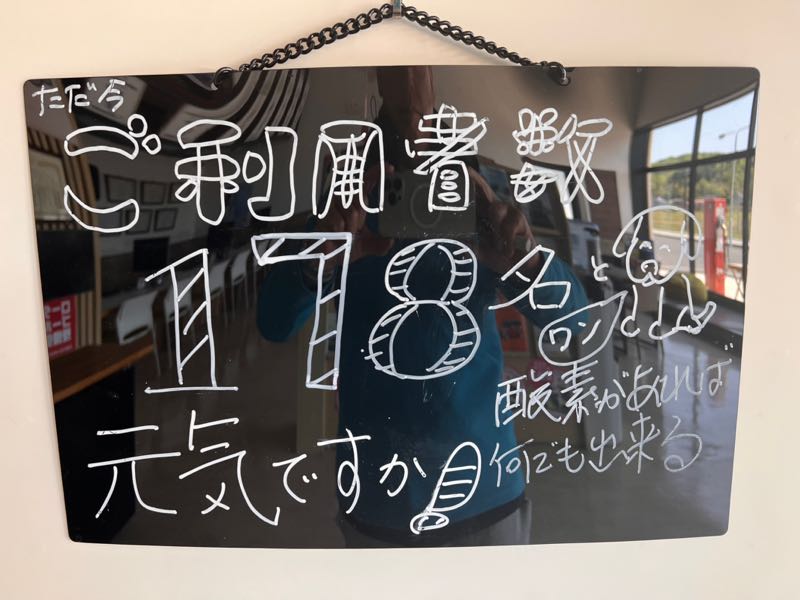 ただ今
ご利用者数
178名と
ワン
元気ですか!
酸素があれば
何でも出来る